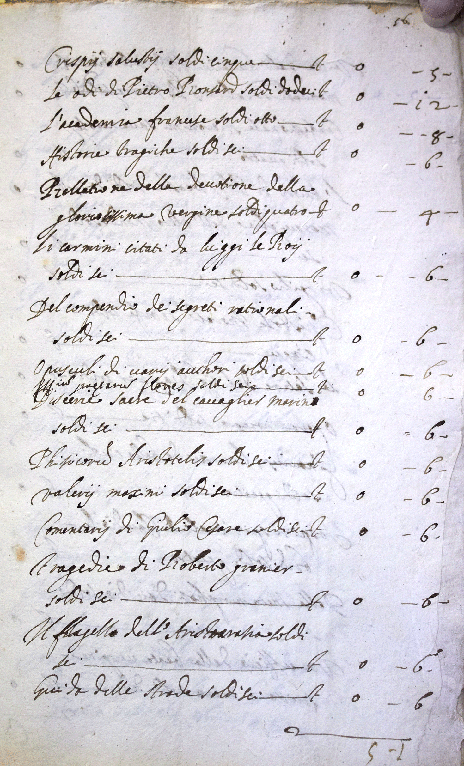 Crispij salustij soldi cinque ₶ 0 - 5 -
Le odi di Pietro Ronsard soldi dodeci ₶ 0 - 12
L'academia francese soldi otto ₶ 0 - 8 -
Historie tragiche soldi sei ₶ 0 - 6 -
Relatione delle devotione della
gloriosissima vergine soldi quatro ₶ 0 - 4 -
Li carmini citati da luiggi le Roij
soldi sei ₶ 0 - 6 -
Del compendio dei segreti rationali
soldi sei ₶ 0 - 6 -
Opusculi di varij authori soldi sei ₶ 0 - 6 -
flores soldi sei ₶ 0 6 -
Dicerie sacre del cavaglier marino
soldi sei ₶ 0 - 6 -
Phisicorum Aristotelis soldi sei ₶ 0 - 6 -
Valerij maximi soldi sei ₶ 0 - 6 -
Comentarij di Giulio Cesare soldi sei ₶ 0 - 6 -
Tragedie di Roberto granier
soldi sei ₶ 0 - 6 -
Il flagello dell' soldi
sei ₶ 0 - 6 -
Guida delle strade soldi sei ₶ 0 - 6
5 - 1